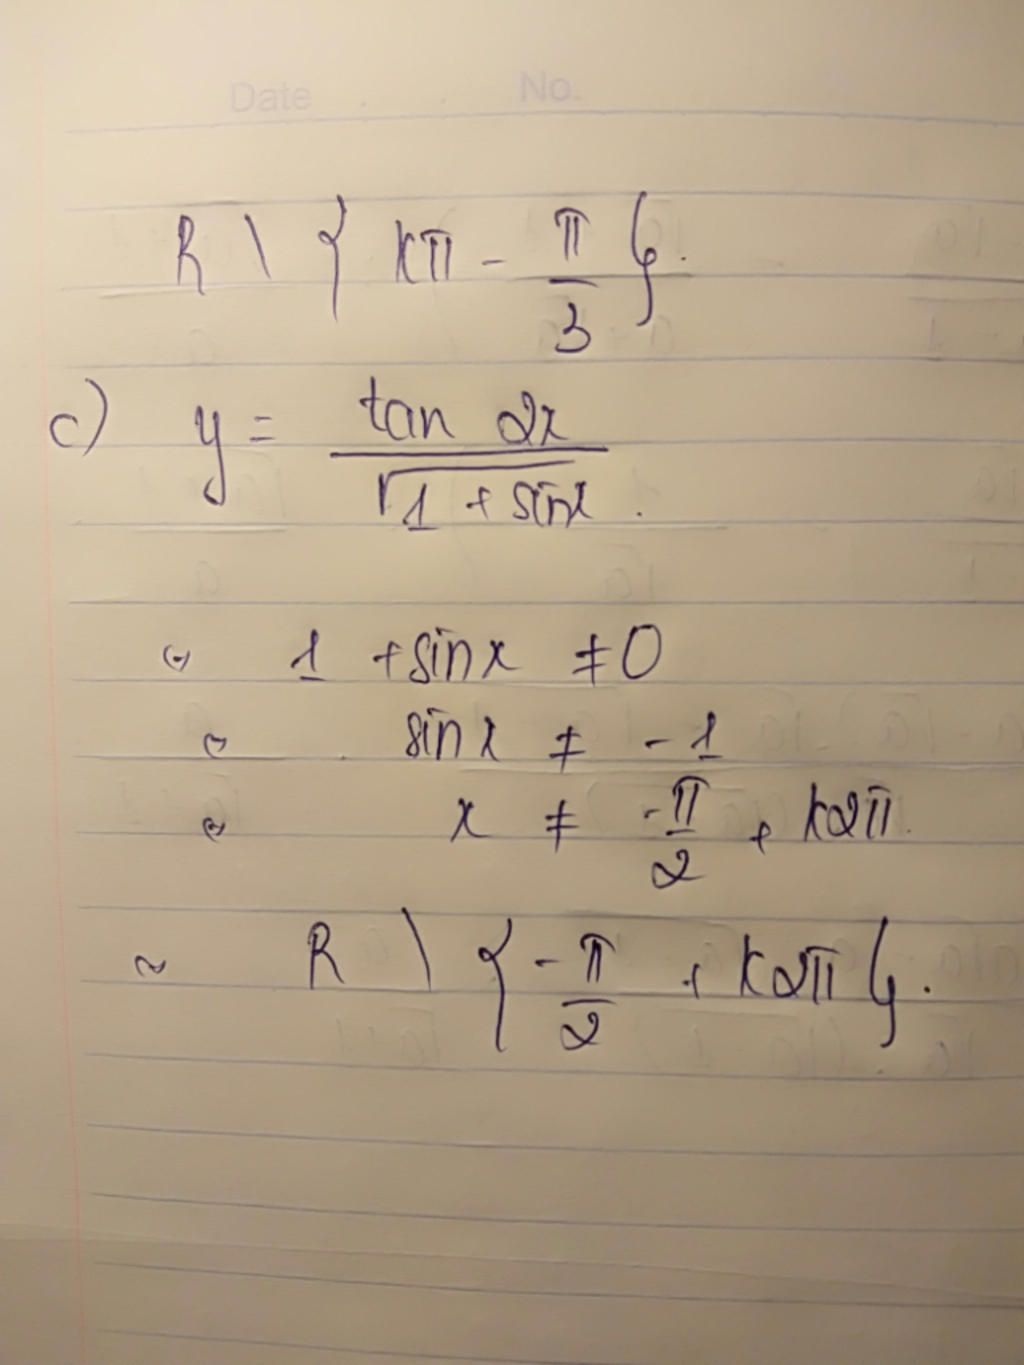 Date No.
R \ { kπ - π/3 }.
c) y = tan 2x / √1 + sinx .
1 + sinx ≠ 0
sinx ≠ -1
x ≠ -π/2 + k2π.
~ R \ { -π/2 + k2π }.